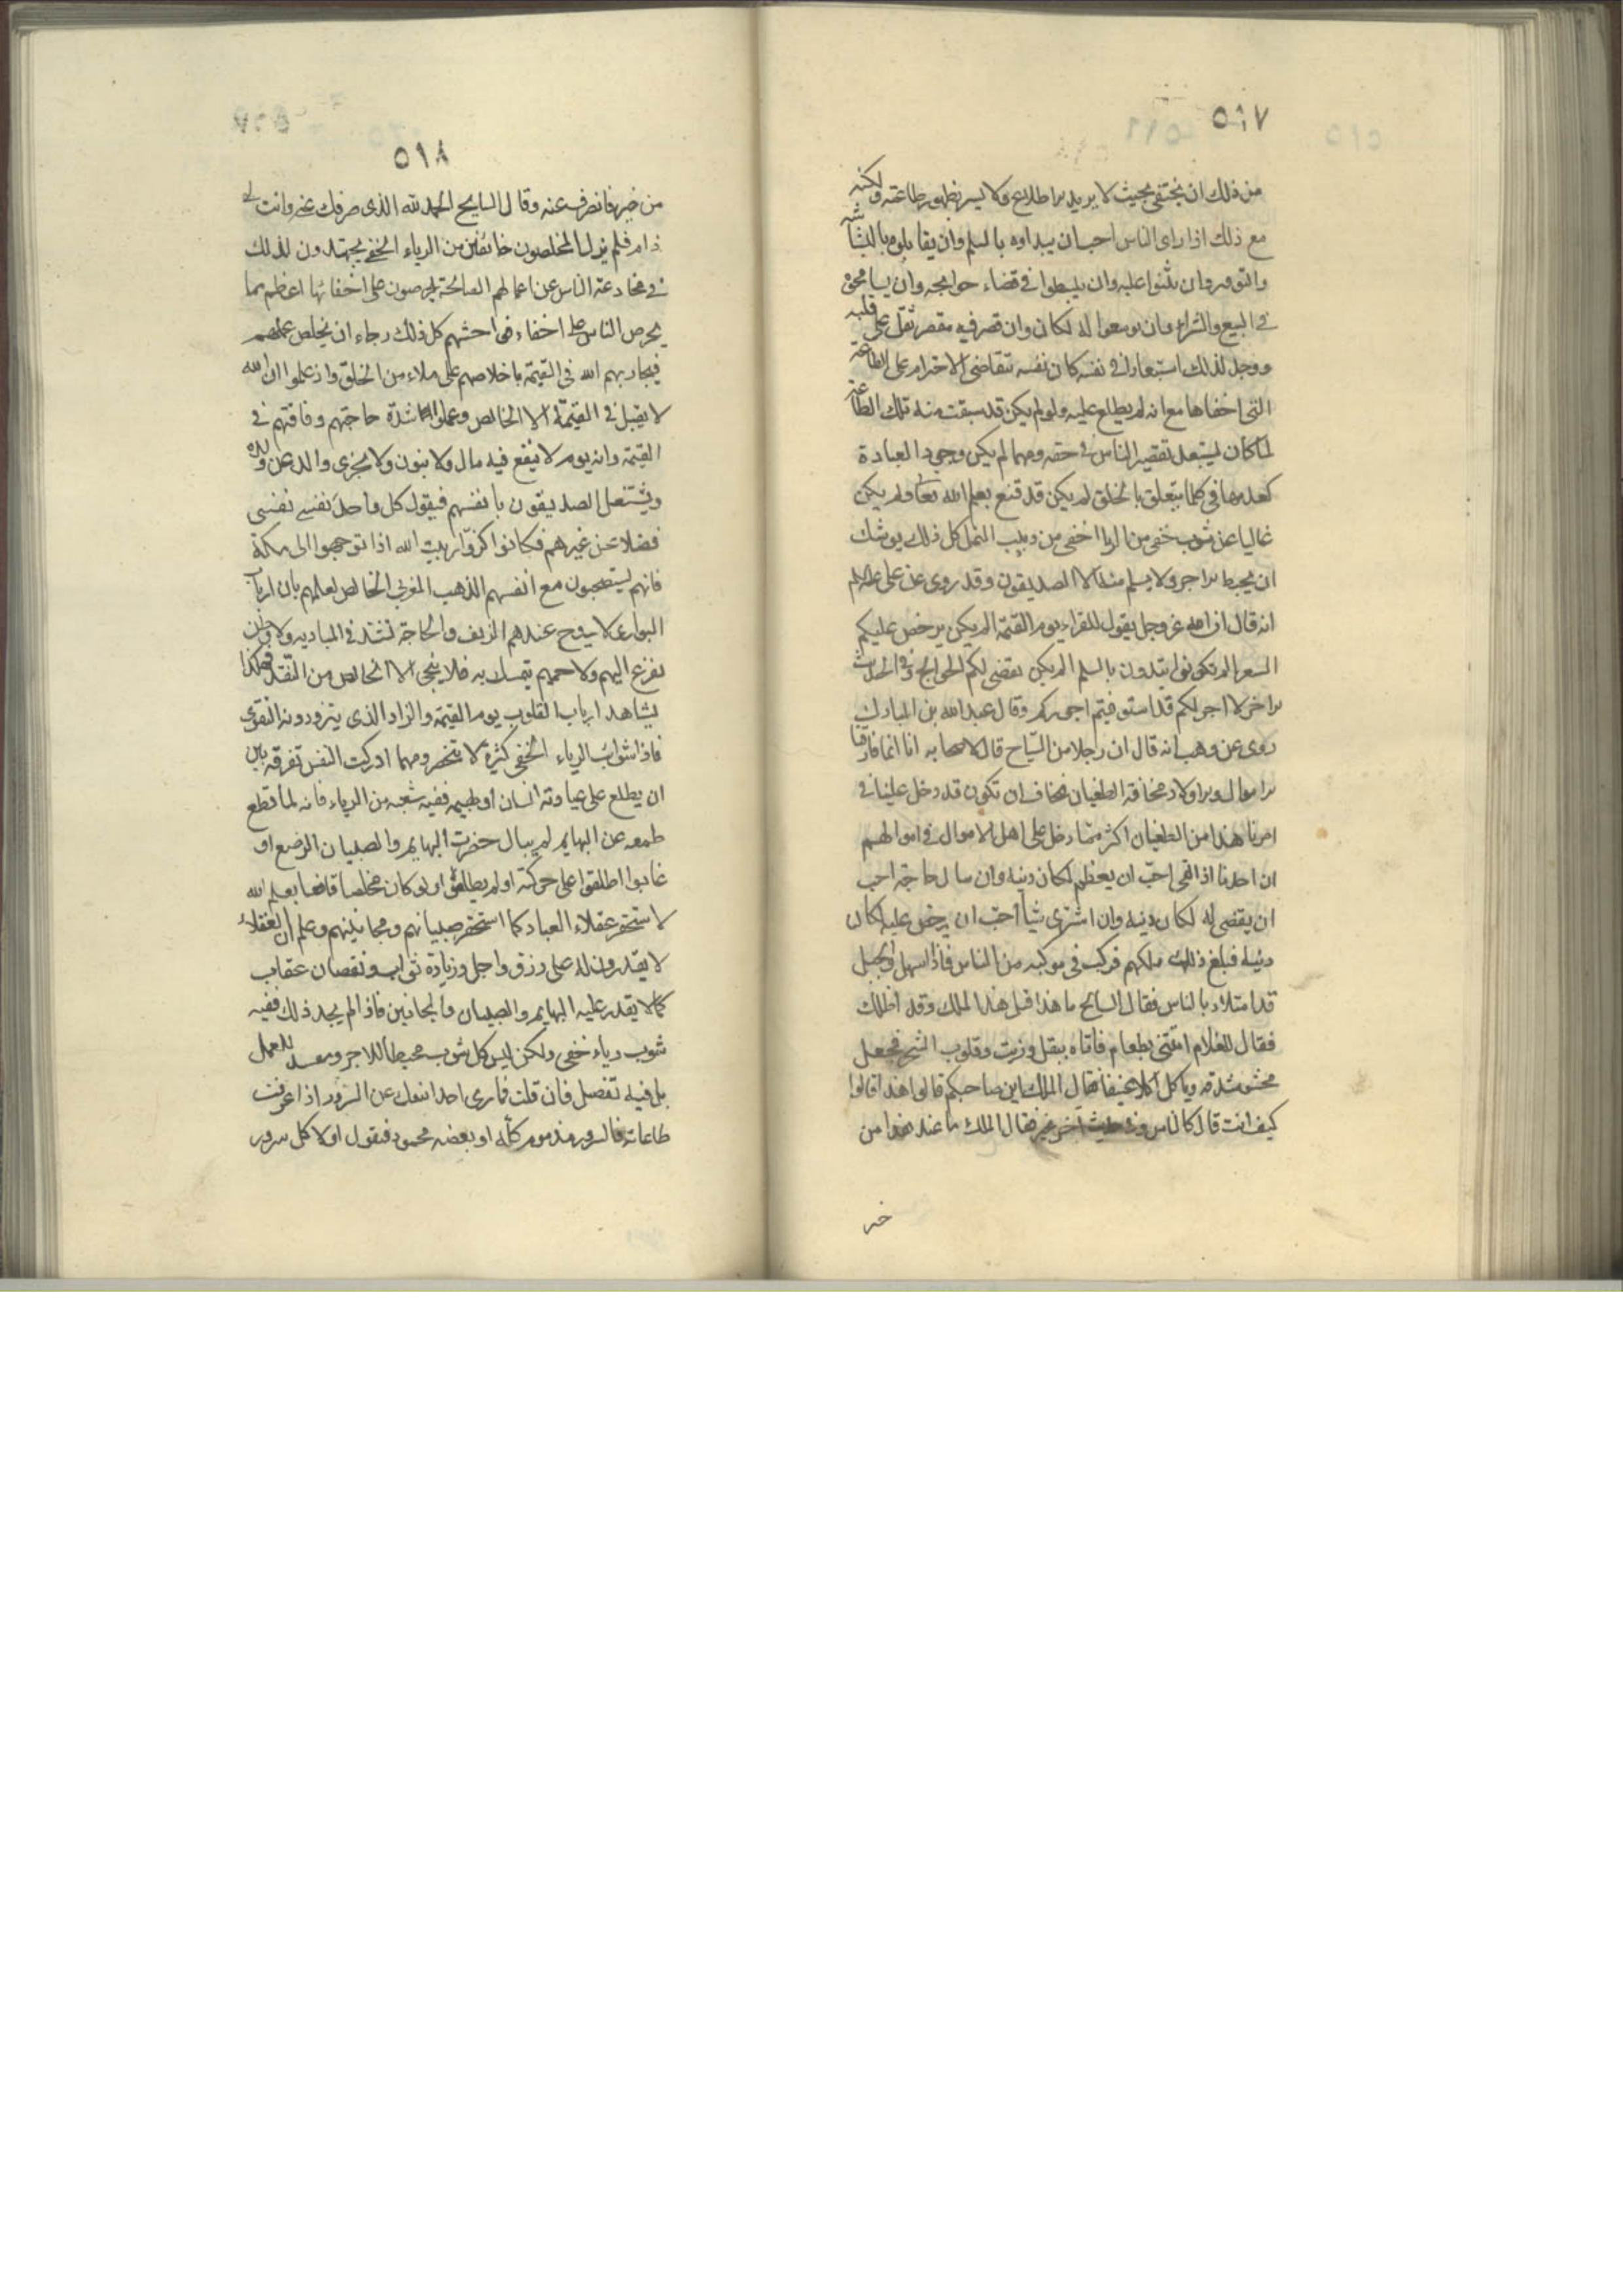 ٥١٧
من ذلك ان يختفى بحيث لا يريد الاطلاع ولا يسر بظهور طاعته ولكنه
مع ذلك اذا راى الناس احب ان يبداوه بالسلم وان يقابلوه بالبشاشه
والتوقير وان يثنوا عليه وان ينبسطوا فى قضاء حوائجه وان يسامحوه
فى البيع والشراء وان يوسعوا له المكان وان قصر فيه مقصر ثقل على قلبه
ووجد لذلك استبعادا فى نفسه كان نفسه تتقاضى الاحترام على الطاعة
التى اخفاها مع انه لم يطلع عليه ولو لم يكن قد سبقت منه تلك الطاعة
لما كان يستبعد تقصير الناس فى حقه ومهما لم يكن وجود العبادة
كعدمها فى كلما يتعلق بالخلق لم يكن قد قنع بعلم الله تعا ولم يكن
خاليا عن شوب خفى من الريا اخفى من دبيب النمل كل ذلك يوشك
ان يحبط الاجر ولا يسلم منه الا الصديقون وقد روى عن على علالم
انه قال ان الله عز وجل يقول للقراء يوم القيمة الم يكن يرخص عليكم
السعر الم تكونوا تبتدون بالسلم الم يكن تقضى لكم الحوائج وفى الحديث
الاخر لا اجر لكم قد استوفيتم اجوركم وقال عبدالله بن المبارك
روى عن وهب انه قال ان رجلا من السياح قال لاصحابه انا انما فارقنا
الاموال والاولاد مخافة الطغيان فنخاف ان تكون قد دخل علينا فى
امرنا هذا من الطغيان اكثر مما دخل على اهل الاموال فى اموالهم
ان احدنا اذا لقى احب ان يعظم لمكان دينه وان سال حاجة احب
ان يقضى له لمكان دينه وان اشترى شيأ احب ان يرخص عليه لمكان
دينه فبلغ ذلك ملكهم فركب فى موكبه من الناس فاذا السهل والجبل
قد امتلاء بالناس فقال السايح ما هذا قيل هذا الملك وقد اظلك
فقال للغلام ائتنى بطعام فاتاه ببقل وزيت وقلوب الشجر فجعل
يحشو شدقه وياكل اكلا عنيفا فقال الملك اين صاحبكم قالوا هذا قالوا
كيف انت قال كالناس وفى حديث اخر بخير فقال الملك ما عند هذا من
خير
٥١٨
من خير فانصرف عنه وقال السايح الحمد لله الذى صرفك عنى وانت لى
ذام فلم يزل المخلصون خائفين من الرياء الخفى يجتهدون لذلك
فى مخادعة الناس عن اعمالهم الصالحة يحرصون على اخفائها اعظم مما
يحرص الناس على اخفاء فواحشهم كل ذلك رجاء ان يخلص عملهم
فيجازيهم الله فى القيمة باخلاصهم على ملاء من الخلق واذ علموا ان الله
لا يقبل فى القيمة الا الخالص وعملوا شدة حاجتهم وفاقتهم فى
القيمة وانه يوم لا ينفع فيه مال ولا بنون ولا يجزى والد عن ولده
ويشتغل الصديقون بانفسهم فيقول كل واحد نفسى نفسى
فضلا عن غيرهم فكانوا كزوار بيت الله اذا توجهوا الى مكة
فانهم يستصحبون مع انفسهم الذهب المغربى الخالص لعلمهم بان ارباب
البوادى لا يروج عندهم الزيف والحاجة تشتد فى البادية ولا وطن
يفزع اليهم ولا حميم يتمسك به فلا ينجى الا الخالص من النقد فهكذا
يشاهد ارباب القلوب يوم القيمة والزاد الذى يتزودونه التقوى
فاذا شوائب الرياء الخفى كثيرة لا تنحصر ومهما ادركت النفس تفرقة بين
ان يطلع على عبادته انسان او بهيمه ففيه شعبه من الرياء فانه لما قطع
طمعه عن البهايم لم يبال حضرت البهايم والصبيان الرضع او
غابوا اطلقوا على حركته او لم يطلعوا ولو كان مخلصا قانعا بعلم الله
لاستحقر عقلاء العباد كما استحقر صبيانهم ومجانينهم وعلم ان العقلاء
لا يقدرون له على رزق واجل وزيادة ثواب ونقصان عقاب
كما لا يقدر عليه البهايم والصبيان والمجانين فاذا لم يجد ذلك ففيه
شوب رياء خفى ولكن ليس كل شوب محبطا للاجر ومفسد للعمل
بل فيه تفصيل فان قلت فما رى احدا ينفك عن السرور اذا عرفت
طاعاته فالسرور مذموم كله او بعضه محمود فنقول اولا كل سرور